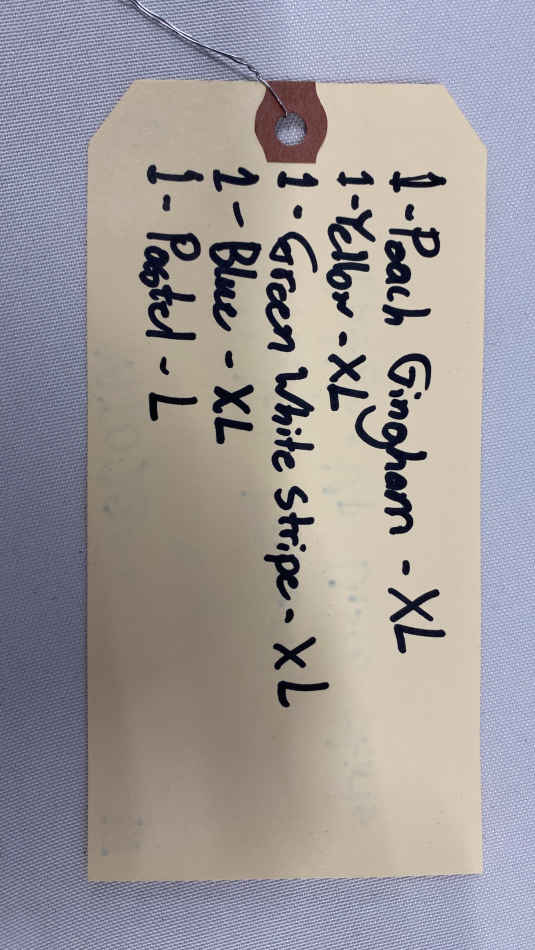 1-Peach Gingham - XL
1-Yellow - XL
1 - Green White stripe - XL
2 - Blue - XL
1 - Pastel - L